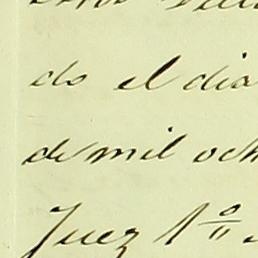 do el dia
de mil och
Juez 1º